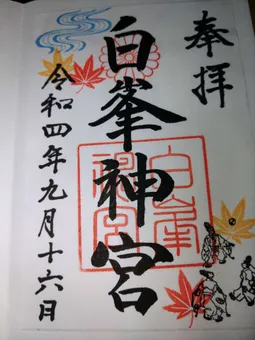 奉拝
白峯神宮
令和四年九月十六日
白峯
神宮